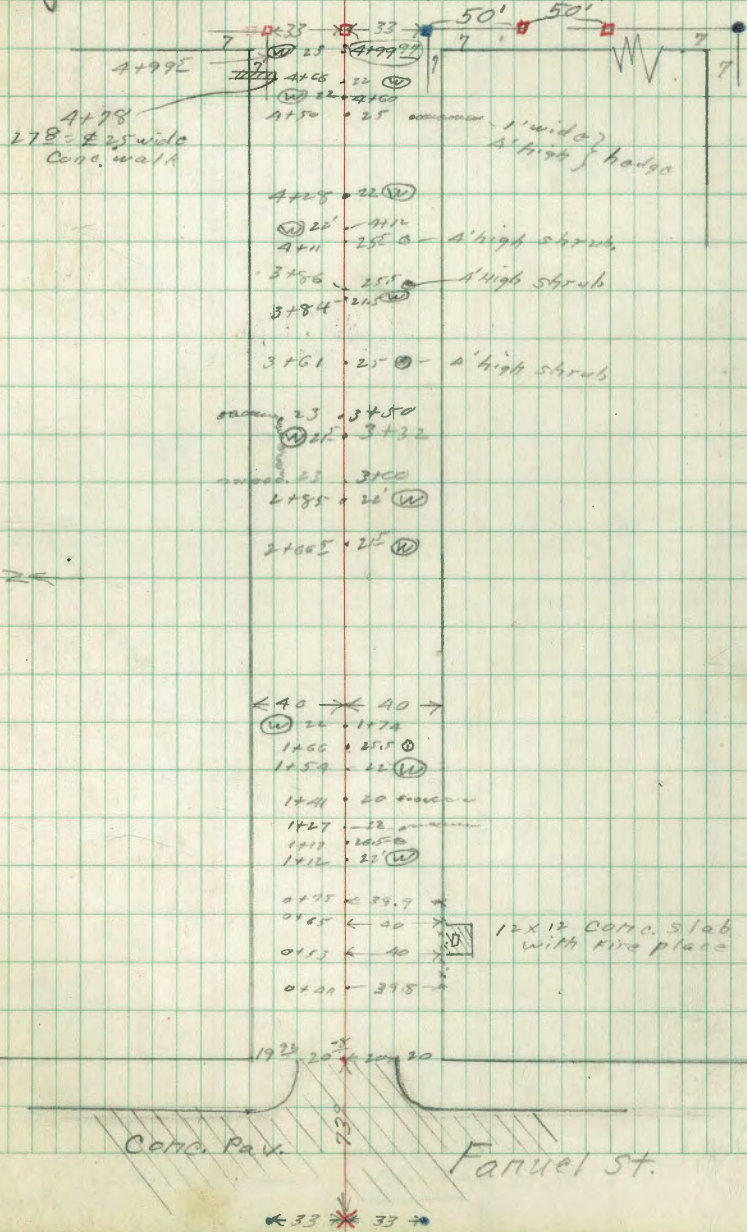 33 33 50' 50'
7 Ⓦ 23 4+99⁹⁷ 7 7
4+99⁵ 7 7 7
4+66 22 Ⓦ
Ⓦ 22 4+60
4+78
27⁸ = ¢ 25 wide
Conc. walk
4+50 25 1' wide }
4' high } hedge
4+28 22 Ⓦ
Ⓦ 22' 4+12
4+11 25⁵ 4' high shrub.
3+86 25.5 4' High shrub
3+84 21.5 Ⓦ
3+61 25 4' high shrub
23 3+50
Ⓦ 21⁵ 3+32
23 3+00
2+85 22' Ⓦ
2+66⁵ 21⁵ Ⓦ
Z
40 40
Ⓦ 22 1+74
1+66 25.5
1+54 22 Ⓦ
1+41 20
1+27 22
1+17 26.5
1+12 22' Ⓦ
0+75 39.9
0+65 40
12x12 Conc. slab
with Fire place
0+53 40
0+40 39.8
20 20 20
73⁹
Conc. Pav.
Fanuel St.
33 33